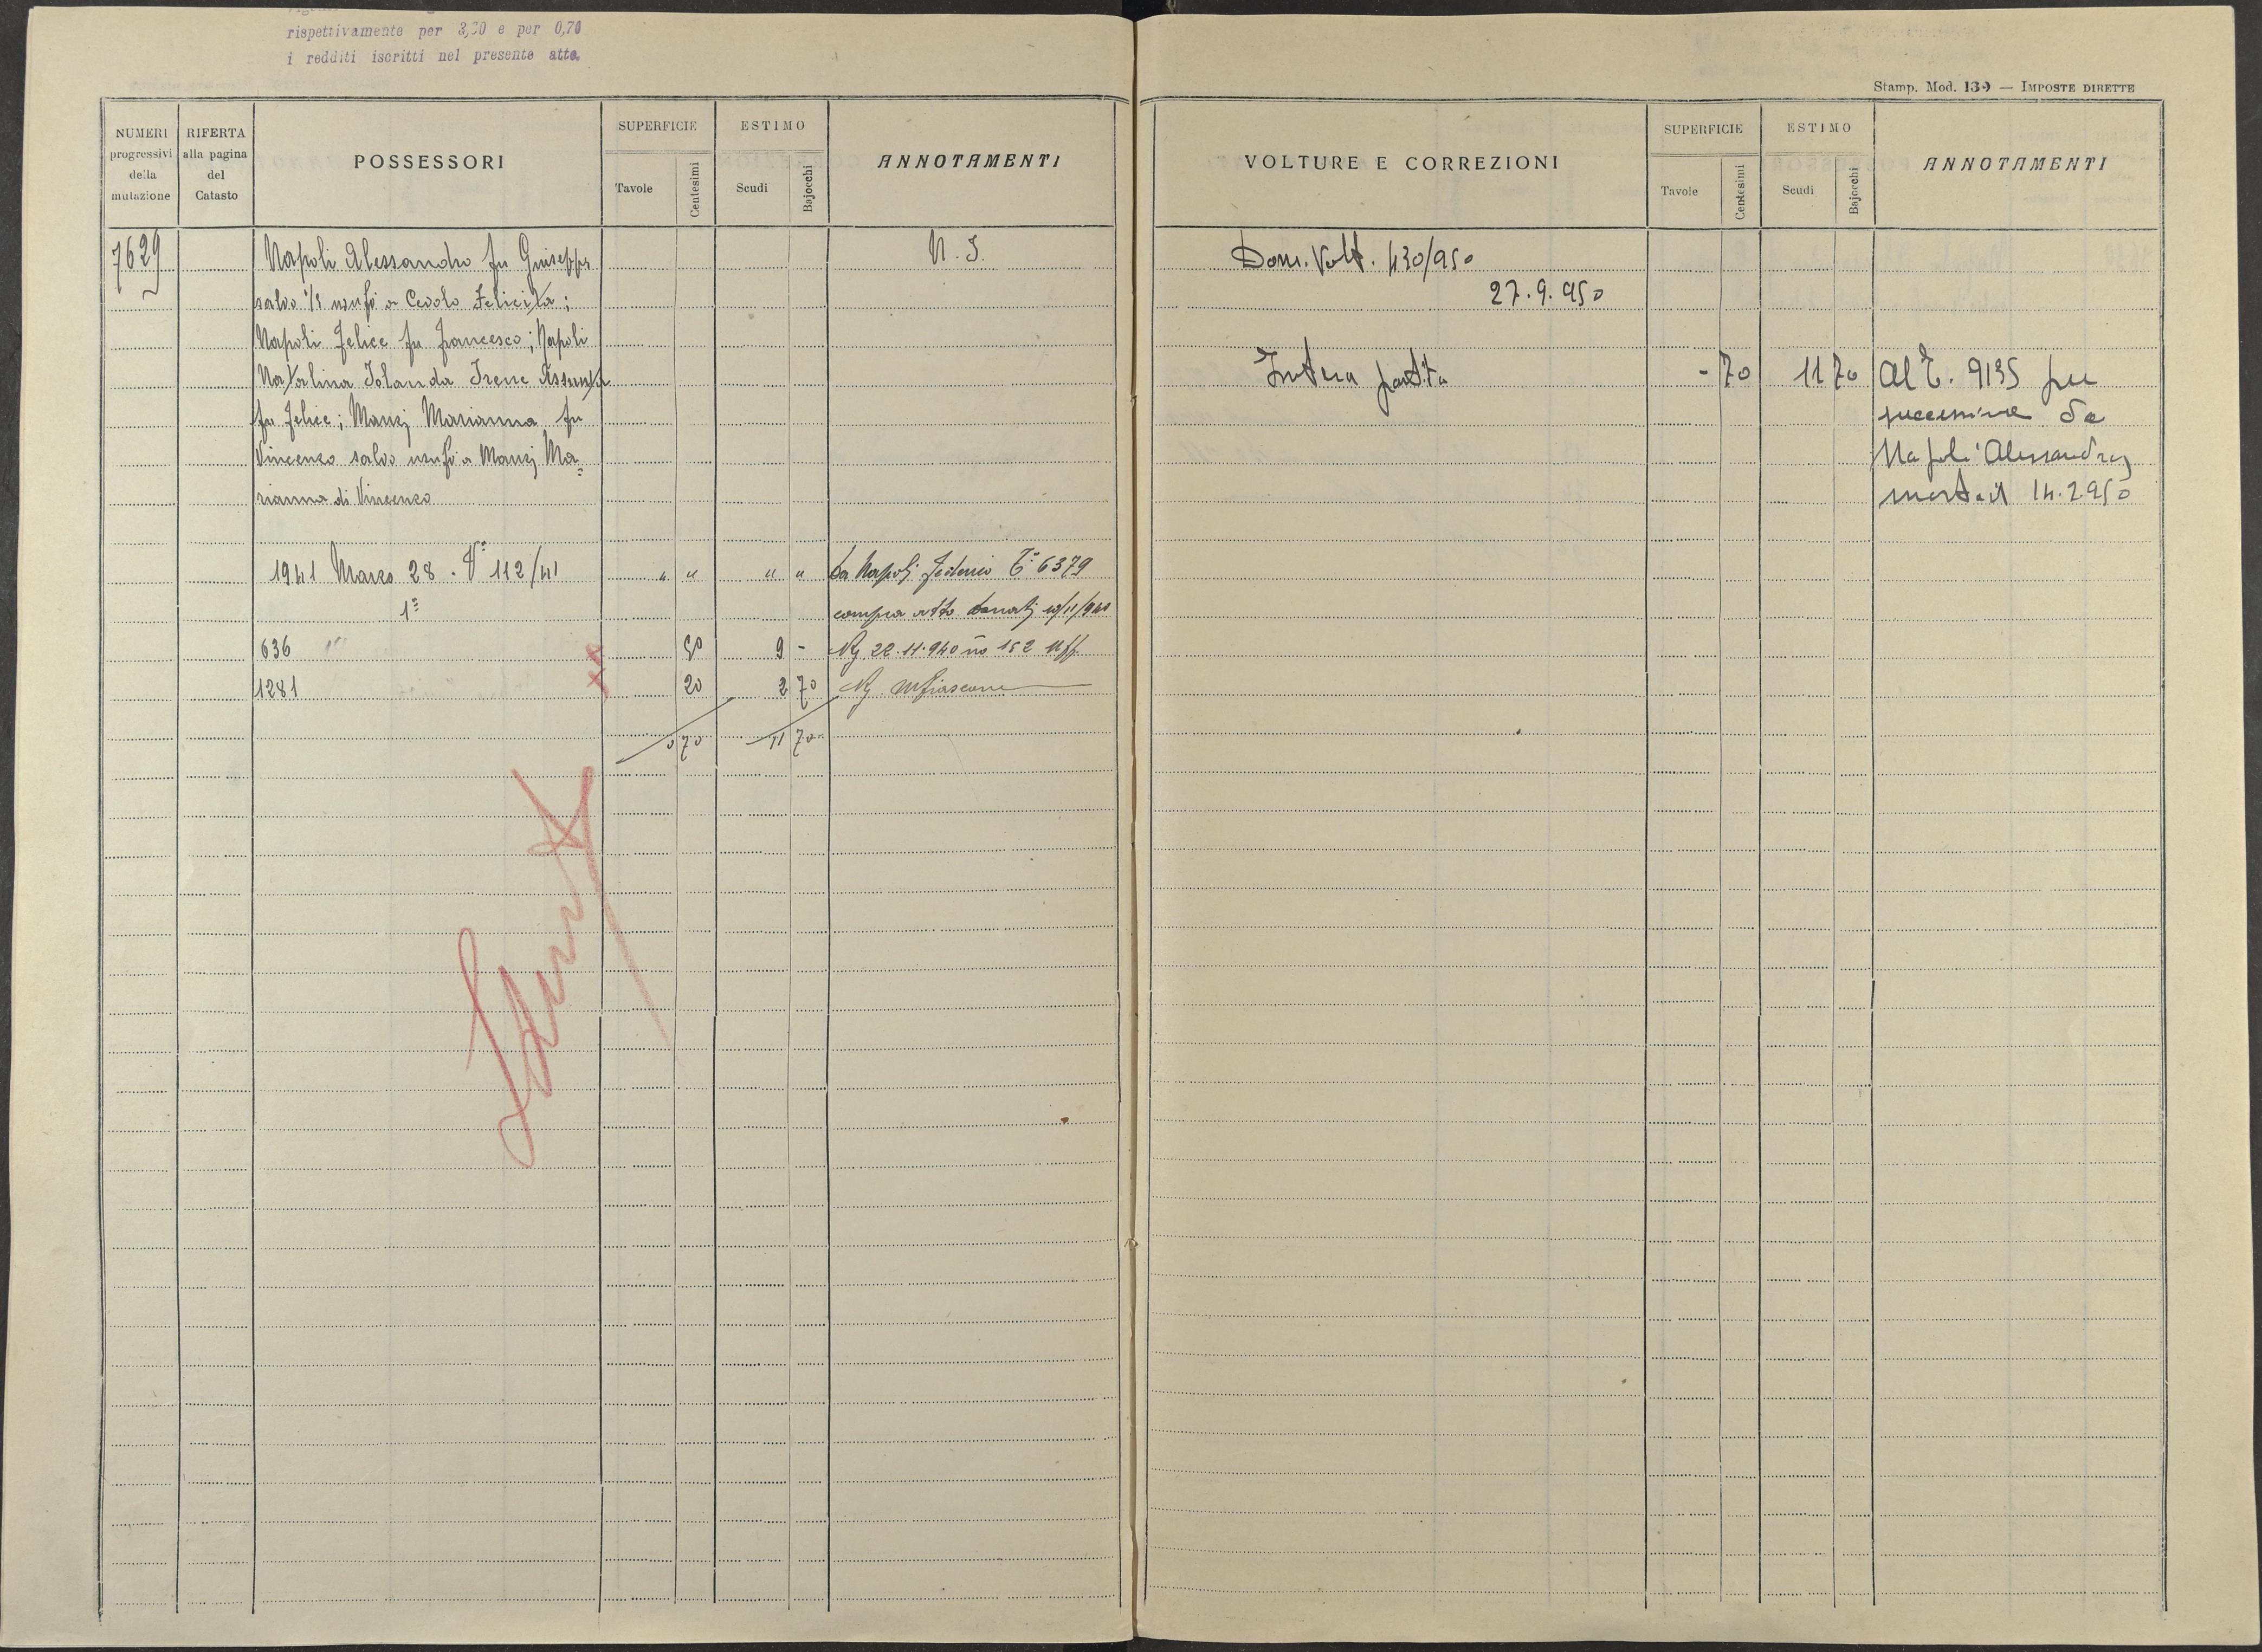 rispettivamente per 3,30 e per 0,70
i redditi iscritti nel presente atto.
NUMERI progressivi della mutazione
RIFERTA alla pagina del Catasto
POSSESSORI
SUPERFICIE
Tavole
Centesimi
ESTIMO
Scudi
Bajocchi
ANNOTAMENTI
7629
Napoli Alessandro fu Giuseppe
N. I.
salvo 1/2 usufo a Ceolo Felicita;
Napoli Felice fu Francesco; Napoli
Natalina Iolanda Irene Assunta
fu Felice; Manzj Marianna fu
Vincenzo salvo usufo a Manzj Ma=
rianna di Vincenzo
1941 Marzo 28. Vª 112/41 " " " " Da Napoli Federico Tº 6379
1ª
compra atto Donatj 10/11/940
636 50 9 - Rg 22.11.940 no 152
1281 20 2 70 Rg Mfiascone
0 70 11 70
Stamp. Mod. 139 — IMPOSTE DIRETTE
VOLTURE E CORREZIONI
SUPERFICIE
Tavole
Centesimi
ESTIMO
Scudi
Bajocchi
ANNOTAMENTI
Dom. Volt. 430/950
27.9.950
Intera partita - 70 11 70 Al T. 9135 per
successione da
Napoli Alessandro
morto il 14.2.950